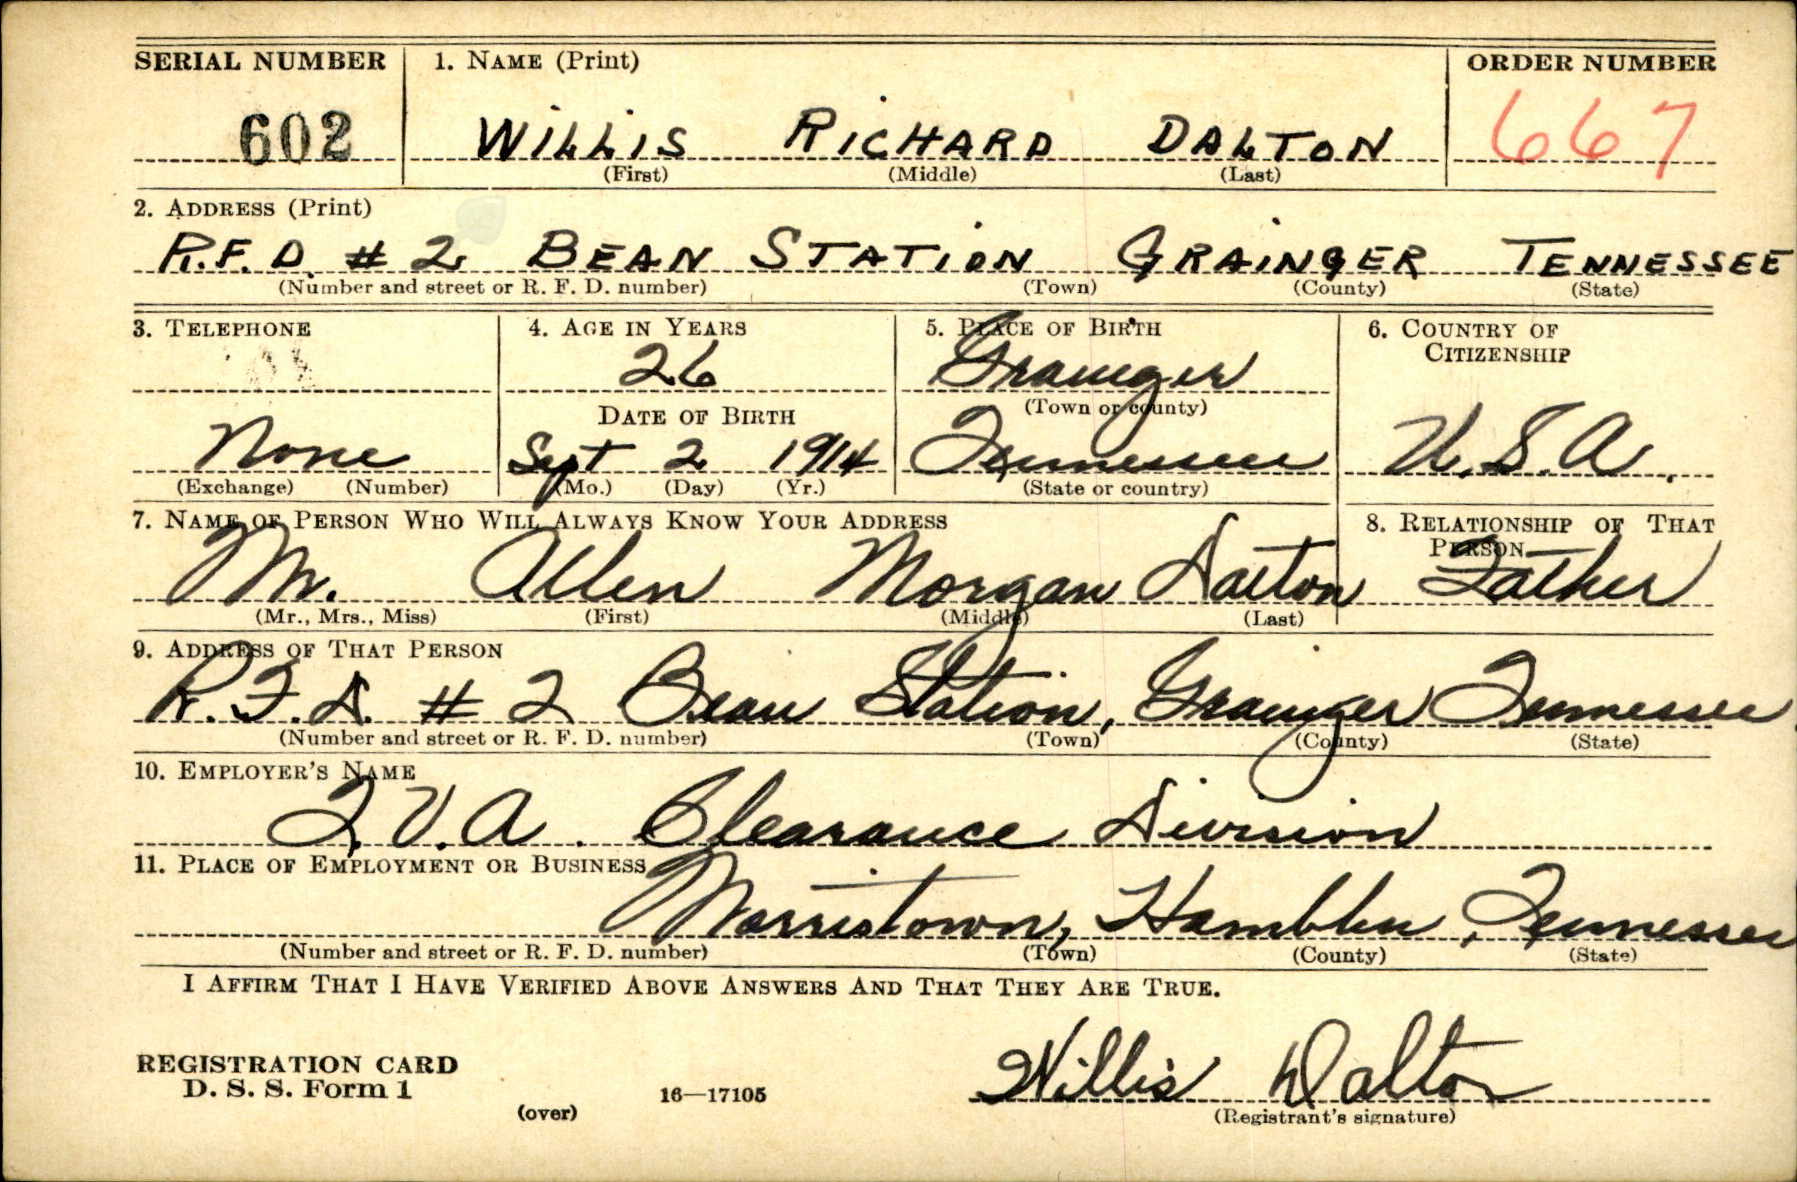 SERIAL NUMBER 1. NAME (Print) ORDER NUMBER
602 WILLIS RICHARD DALTON 667
(First) (Middle) (Last)
2. ADDRESS (Print)
R.F.D. # 2 BEAN STATION GRAINGER TENNESSEE
(Number and street or R. F. D. number) (Town) (County) (State)
3. TELEPHONE 4. AGE IN YEARS 5. PLACE OF BIRTH 6. COUNTRY OF CITIZENSHIP
26 Grainger
DATE OF BIRTH (Town or county)
None Sept 2 1914 Tennessee U.S.A.
(Exchange) (Number) (Mo.) (Day) (Yr.) (State or country)
7. NAME OF PERSON WHO WILL ALWAYS KNOW YOUR ADDRESS 8. RELATIONSHIP OF THAT PERSON
Mr. Allen Morgan Dalton Father
(Mr., Mrs., Miss) (First) (Middle) (Last)
9. ADDRESS OF THAT PERSON
R.F.D. # 2 Bean Station, Grainger Tennessee
(Number and street or R. F. D. number) (Town) (County) (State)
10. EMPLOYER'S NAME
T.V.A. Clearance Division
11. PLACE OF EMPLOYMENT OR BUSINESS
Morristown, Hamblen, Tennessee
(Number and street or R. F. D. number) (Town) (County) (State)
I AFFIRM THAT I HAVE VERIFIED ABOVE ANSWERS AND THAT THEY ARE TRUE.
REGISTRATION CARD
D. S. S. Form 1 16—17105 Willis Dalton
(over) (Registrant's signature)